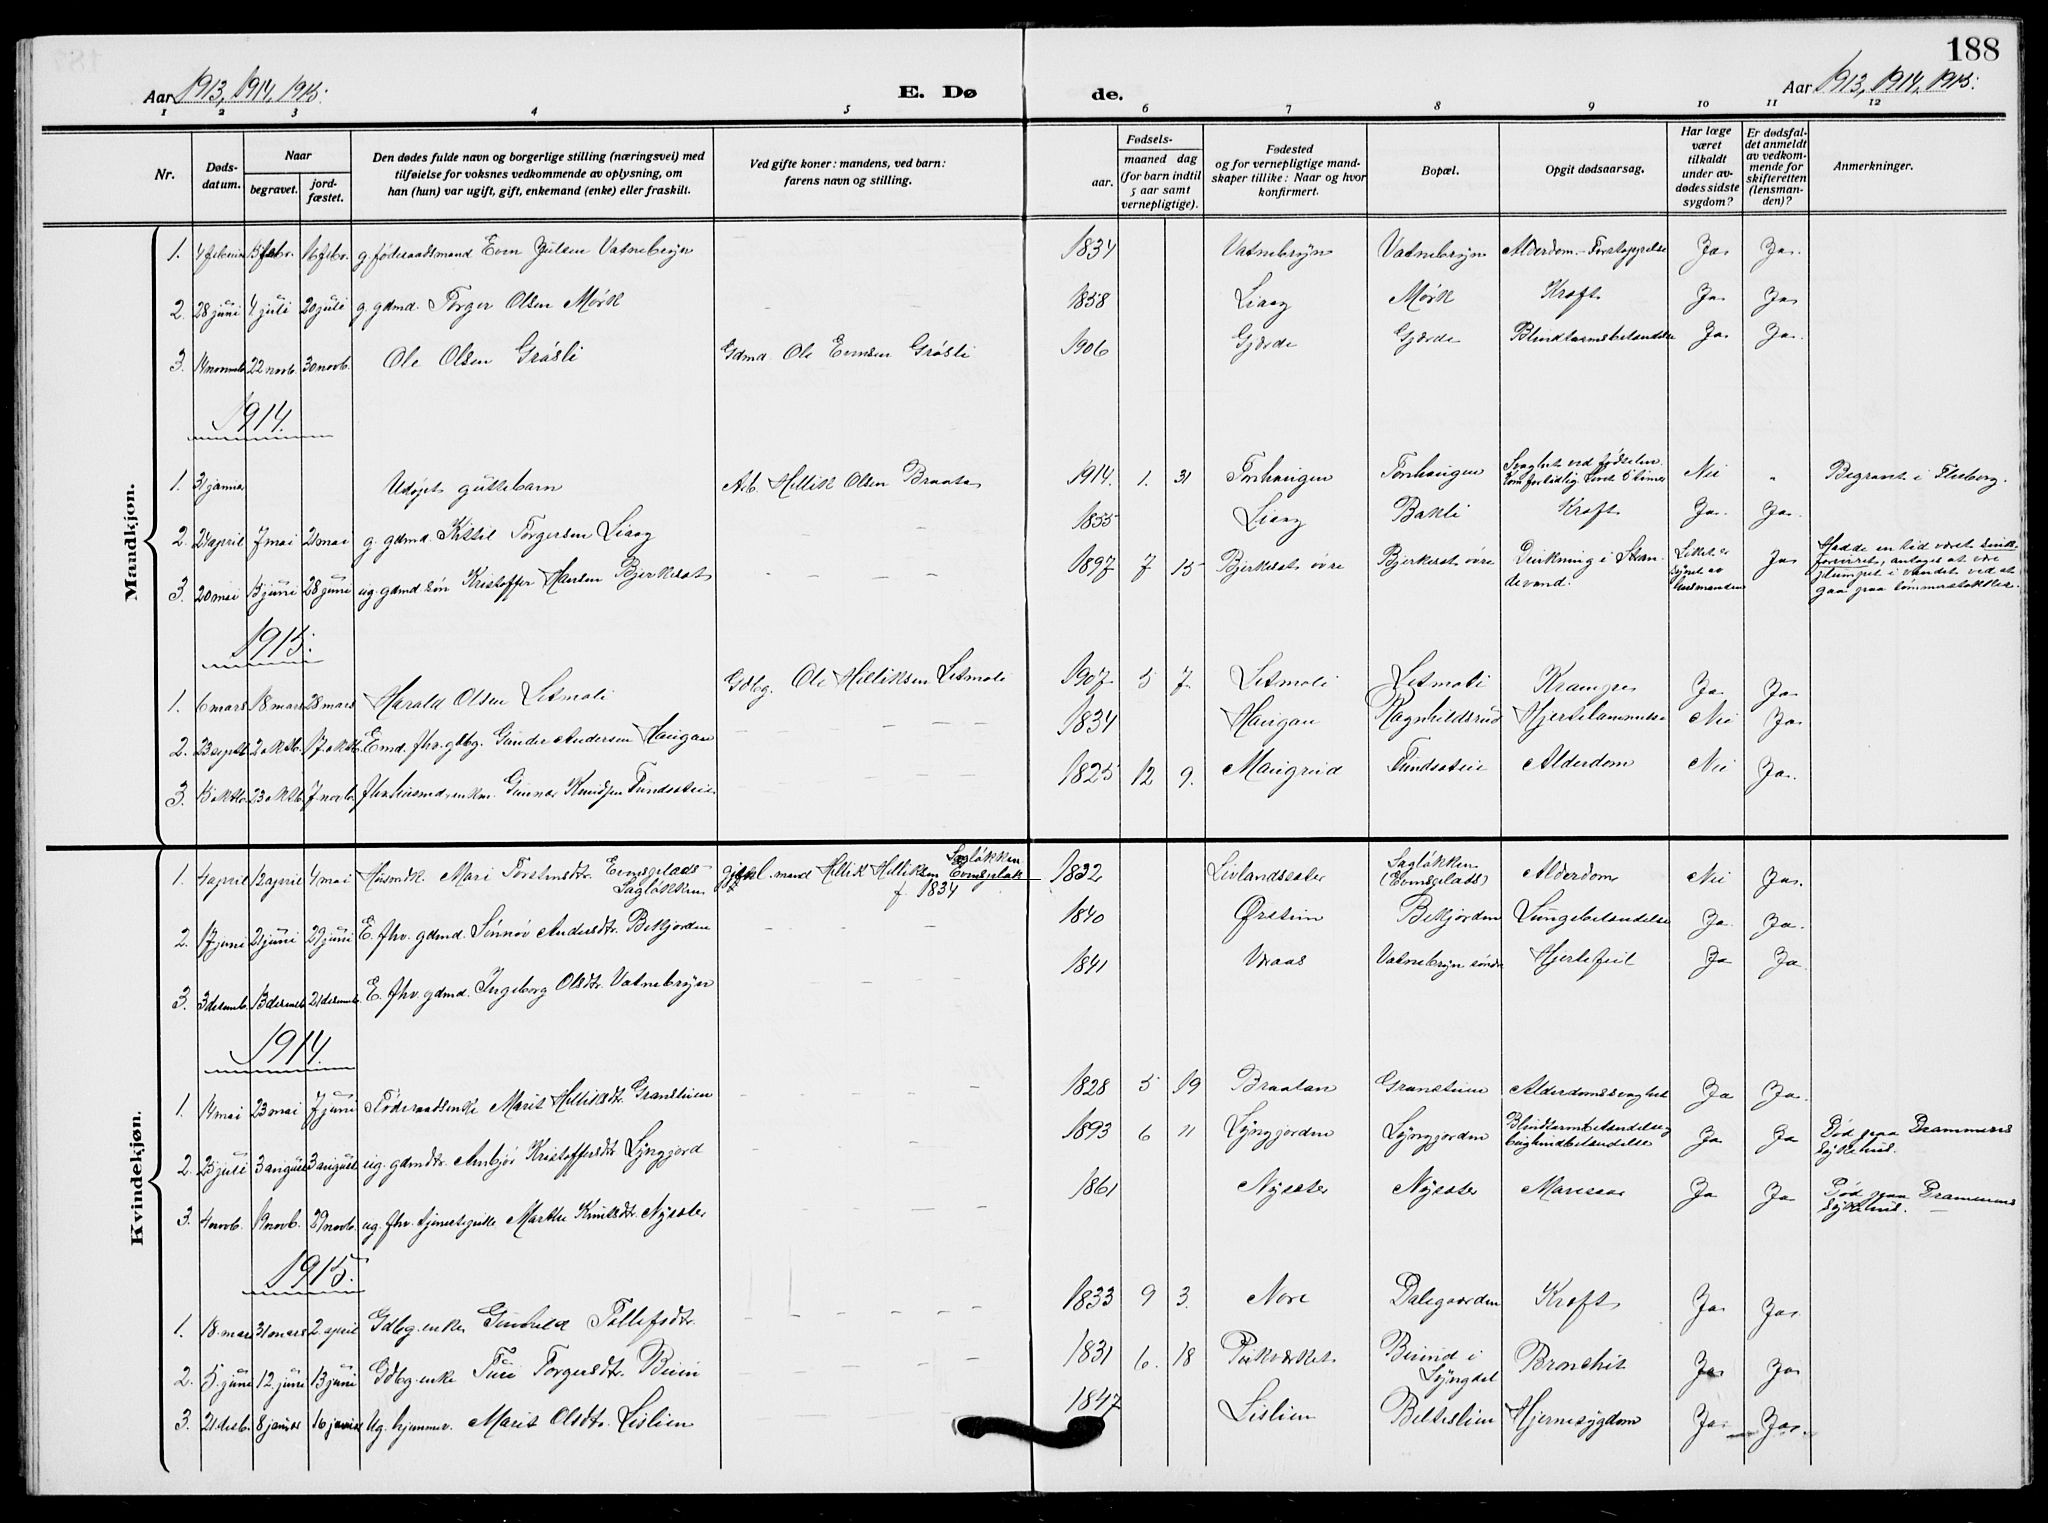 188
Aar 1913, 1914, 1915. E. Døde. Aar 1913, 1914, 1915.
1 2 3 4 5 6 7 8 9 10 11 12
Nr. Døds-datum. Naar begravet. jord-fæstet. Den dødes fulde navn og borgerlige stilling (næringsvei) med tilføielse for voksnes vedkommende av oplysning, om han (hun) var ugift, gift, enkemand (enke) eller fraskilt. Ved gifte koner: mandens, ved barn: farens navn og stilling. Fødsels- aar. maaned dag (for barn indtil 5 aar samt vernepligtige). Fødested og for vernepligtige mandskaper tillike: Naar og hvor konfirmert. Bopæl. Opgit dødsaarsag. Har læge været tilkaldt under avdødes sidste sygdom? Er dødsfaldet anmeldt av vedkommende for skifteretten (lensmanden)? Anmerkninger.
Mandkjøn.
1. 15 febr. 16 febr. g. føderaadsmand Even Julsen Vatnebryn 1834 Vatnebryn Vatnebryn Alderdom - Forstoppelse Ja Ja.
2. 28 juni 4 juli 20 juli g. gdmd. Torger Olsen Mørk 1858 Liaag Mørk Kræft Ja Ja
3. 22 novb. 30 novb. Ole Olsen Gråsli Gdmd. Ole Evensen Gråsli 1906 Gjærde Gjærde Blindtarmsbetændelse Ja Ja.
1914.
1. 31 januar Udøpt guttebarn Arb. Hellik Olsen Braata 1914. 1. 31 Torhaugen Torhaugen Svaghet ved fødselen. Nei " Begravet i Flesberg.
2. 7 mai 21 mai g. gdmd. Kittil Torgersen Liaag 1855 Liaag Bakli Kræft Ja. Ja.
3. 20 mai 13 juni 28 juni ug. gdmd. søn Kristoffer Hansen Bjerkeset 1897 7 15 Bjerkeset øvre Bjerkeset øvre Drukning i Strandevand. Liket er synet av lensmanden Ja Hadde en tid været sindsforvirret, antages at være plumpet i vandet ved at gaa paa tømmerstokker.
1915.
1. 6 mars 18 mars 28 mars Harald Olsen Letmoli Gdbg. Ole Helliksen Letmoli 1907 5 7 Letmoli Letmoli Krampe Ja Ja
2. 23 septb. 2 oktb. 17 oktb. Emd. fhv. gdbg. Gunder Andersen Haugan 1834 Haugan Ragnhildsrud Hjertelammelse Nei Ja
3. 13 oktbr. 23 oktb. 7 novbr. fhv. husmd. enkm. Gunnar Knudsen 1825 12 9. Maurgrud Alderdom Nei Ja.
Kvindekjøn.
1. 4 april 12 april 4 mai Husmdk. Mari Torstensdtr. Evensplads Sagløkken mand Hellik Helliksen Sagløkken Evensplads f. 1834 1832 Livlandsæter Sagløkken (Evensplads) Alderdom Nei Ja.
2. 17 juni 21 juni 29 juni E. fhv. gdmd. Sønnøv Andersdtr. Bekjorden 1840 Ørstein Bekjorden Lungebetændelse Ja Ja.
3. 3 decemb. 13 decemb. 21 decemb. E. fhv. gdmd. Ingeborg Olsdtr. Vatnebryn 1841 Vraas Vatnebryn søndre Hjertefeil Ja Ja
1914.
1. 14 mai 23 mai 7 juni Føderaadsenke Marit Helliksdtr. Granstuen 1828 5 19 Braatan Granstuen Alderdomssvaghet Ja Ja.
2. 25 juli 3 august 3 august ug. gdmdtr. Anbjør Kristoffersdtr. Lyngjord 1893 6 11 Lyngjorden Lyngjorden Blindtarmbetændelse og bughindbetændelse Ja Ja Død paa Drammens sykehus.
3. 4 novb. 19 novb. 29 novb. ug. fhv. tjenestepike Marthe Knutsdtr. Nysæter 1861 Nysæter Nysæter Ja Ja Død paa Drammens sykehus.
1915.
1. 18. mars 31 mars 2. april Gdbg. enke Gunhild Tollefsdtr. 1833 9 3. Nore Dalegaarden Kræft Ja Ja.
2. 5. juni 12. juni 13 juni Gdbg. enke Turi Torgersdtr. Beiin 1831 6. 18 Beiind i Lyngdal Bronchit Ja Ja
3. 21 decb. 8 januar 16 januar Ug. hjemmev. Marit Olsdtr. Lislien 1847 Lislien Beltislien Hjernesygdom Ja Ja.